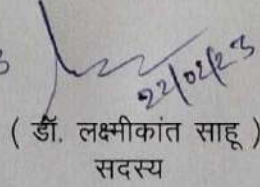 22/02/23
( डॉ. लक्ष्मीकांत साहू )
सदस्य